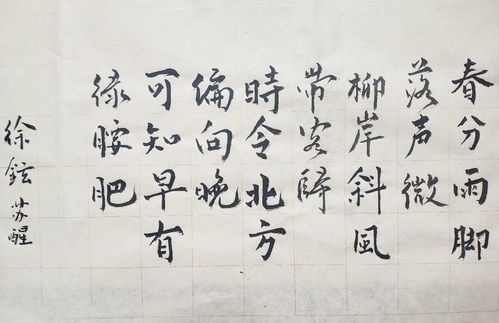 春分雨脚
落声微
柳岸斜風
带客歸
時令北方
偏向晚
可知早有
緑腰肥
徐鉉 苏醒